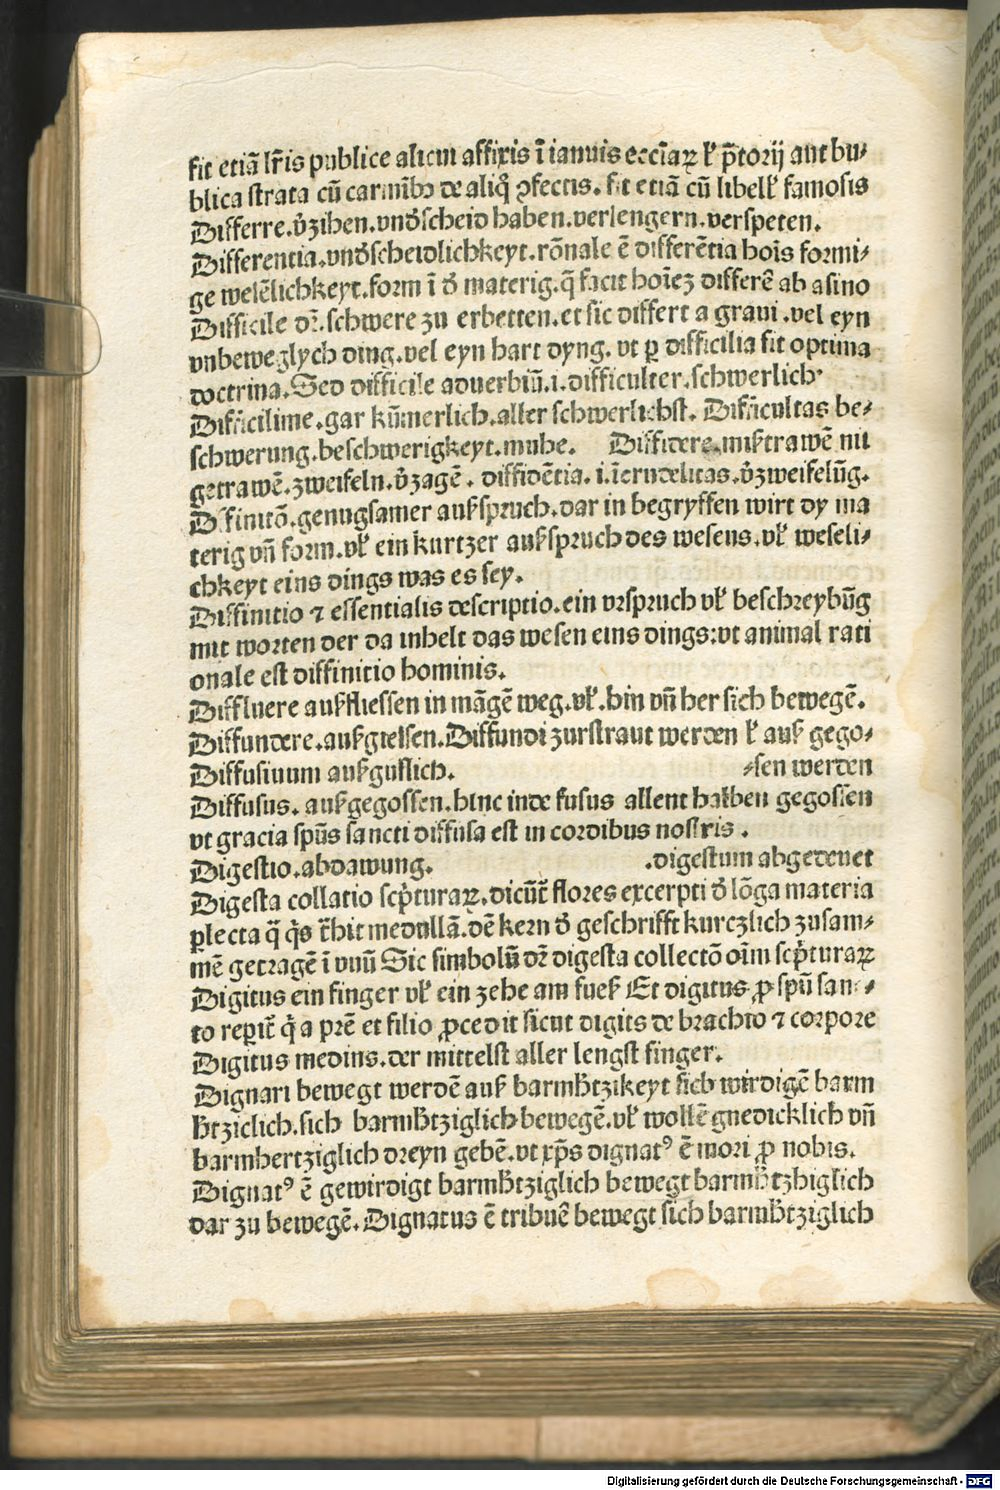 fit etiā lr̄is publice alicui affixis ī ianuis eccīaꝝ ł p̄torij aut bu⸗
blica strata cū carmībꝫ de aliq̄ ꝯfectis. fit etiā cū libell' famosis
Differre.v̄zihen.vnd̄scheid haben.verlengern.verspeten.
Differentia.vnd̄scheidlichkeyt.rōnale ē differētia hoīs formi⸗
ge wesēlichkeyt.form ī d̄ materig.q̄ facit hoīeꝫ differē ab asino
Difficile dr̄.schwere zu erbetten.et sic differt a graui.vel eyn
vnbeweglych ding.vel eyn hart dyng. vt ꝑ difficilia fit optima
doctrina.Sed difficile aduerbiū.i.difficulter.schwerlich
Difficilime.gar kūmerlich.aller schwerlichst. Difficultas be⸗
schwerung.beschwerigkeyt.muhe. Diffidere.miſtrawē nit
getrawē.zweifeln.v̄zagē. diffidētia.i.īcrudelitas.v̄zweifelūg.
Diffinitō.genugsamer auſspruch.dar in begryffen wirt dy ma
terig vn̄ form.vł ein kurtzer auſspruch des wesens.vł weseli⸗
chkeyt eins dings was es sey.
Diffinitio ⁊ essentialis descriptio.ein vrspruch vł beschreybūg
mit worten der da inhelt das wesen eins dings:vt animal rati
onale est diffinitio hominis.
Diffluere auſfliessen in māgē weg.vł.hin vn̄ her sich bewegē.
Diffundere.auſgiessen.Diffundi zurstraut werden ł auſ gego⸗
Diffusiuum auſguſlich. ⸗sen werden
Diffusus. auſgegossen.hinc inde fusus allent halben gegossen
vt gracia spūs sancti diffusa est in cordibus nostris.
Digestio.abdawung. .digestum abgedenet
Digesta collatio scp̄turaꝝ.dicūt̄ flores excerpti d̄ lōga materia
plecta q̄ q̄s t̄hit medullā.dē kern d̄ geschrifft kurczlich zusam⸗
mē getragē ī vnū Sic simbolū dr̄ digesta collectō oīm scp̄turaꝝ
Digitus ein finger vł ein zehe am fueſ Et digitus ꝓ spū san⸗
to reꝑit̄ q̄ a prē et filio ꝓcedit sicut digits de brachio ⁊ corpore
Digitus medius.der mittelst aller lengst finger.
Dignari bewegt werdē auſ barmh̄tzikeyt sich wirdigē barm
h̄tziclich.sich barmh̄tziglich bewegē.vł wollē gnedicklich vn̄
barmhertziglich dreyn gebē.vt xp̄s dignatꝰ ē mori ꝓ nobis.
Dignatꝰ ē gewirdigt barmh̄tziglich bewegt barmh̄tzhiglich
dar zu bewegē.Dignatus ē tribuē bewegt sich barmh̄tziglich
Digitalisierung gefördert durch die Deutsche Forschungsgemeinschaft - DFG